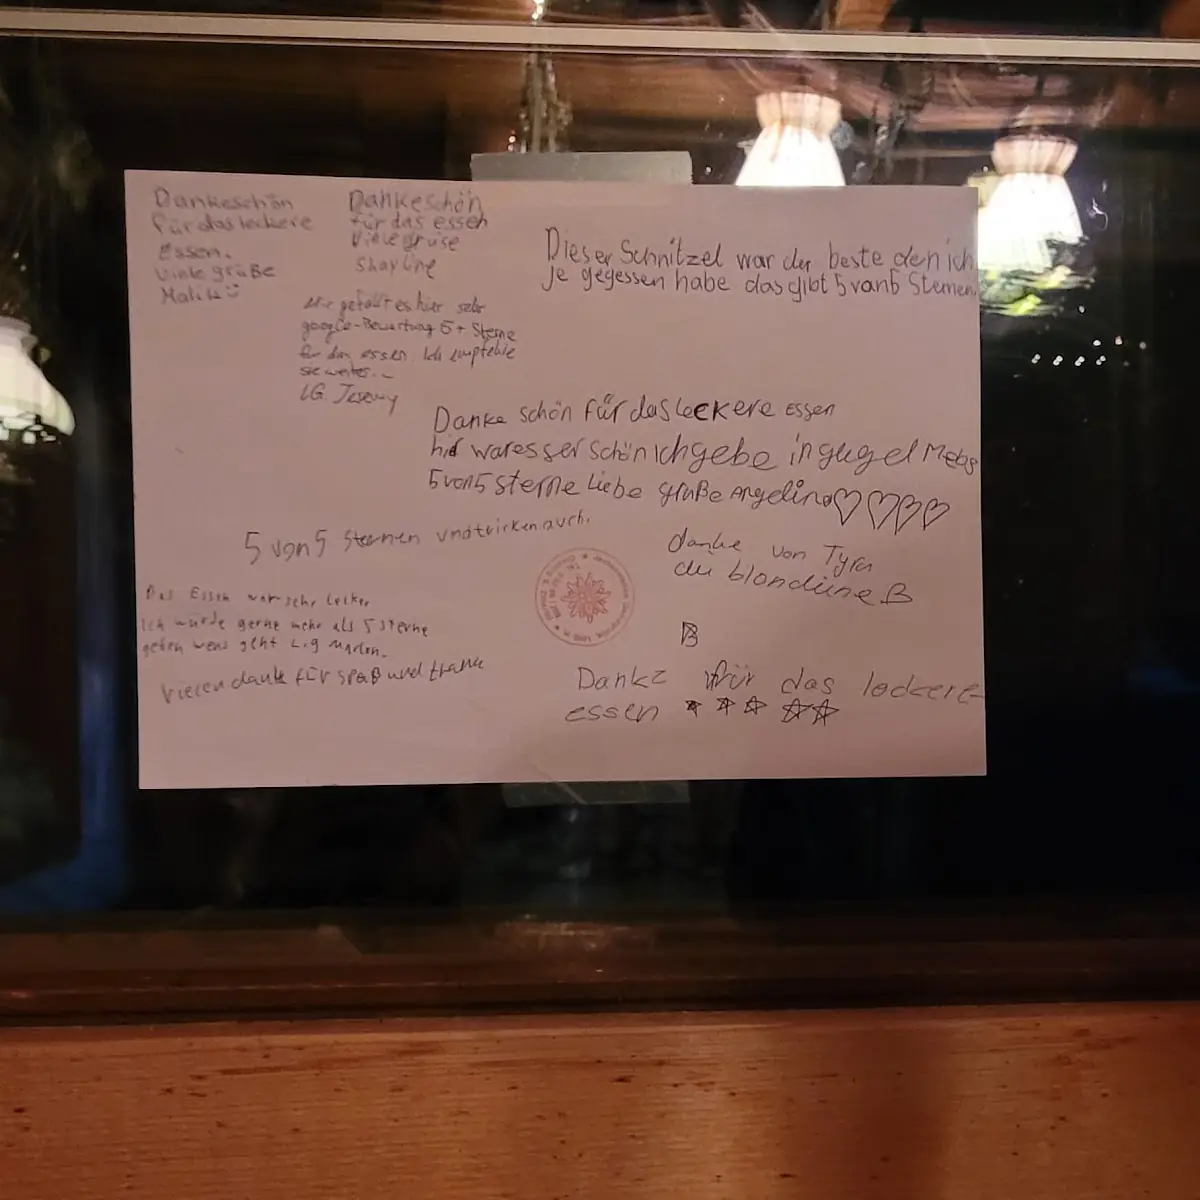 Dankeschön
für das leckere
Essen.
Viele grüße
Malik
Dankeschön
für das essen
Viele grüse
Shayline
Dieser Schnitzel war der beste den ich
je gegessen habe das gibt 5 von 5 Sternen.
Mir gefällt es hier sehr
google-Bewertung 5+ Sterne
für das essen. Ich empfehle
sie weiter...
LG. Jeremy
Danke schön für das leckere essen
hir war es ser schön ich gebe in gugel Mebs
5 von 5 sterne Liebe grüße Angelina
5 von 5 Sternen und trinken auch.
danke von Tyra
die blondiene B
Das Essen war sehr lecker
Ich würde gerne mehr als 5 sterne
geben wens geht L.g Marlon.
vielen dank für spaß und
B
Danke für das leckere
essen